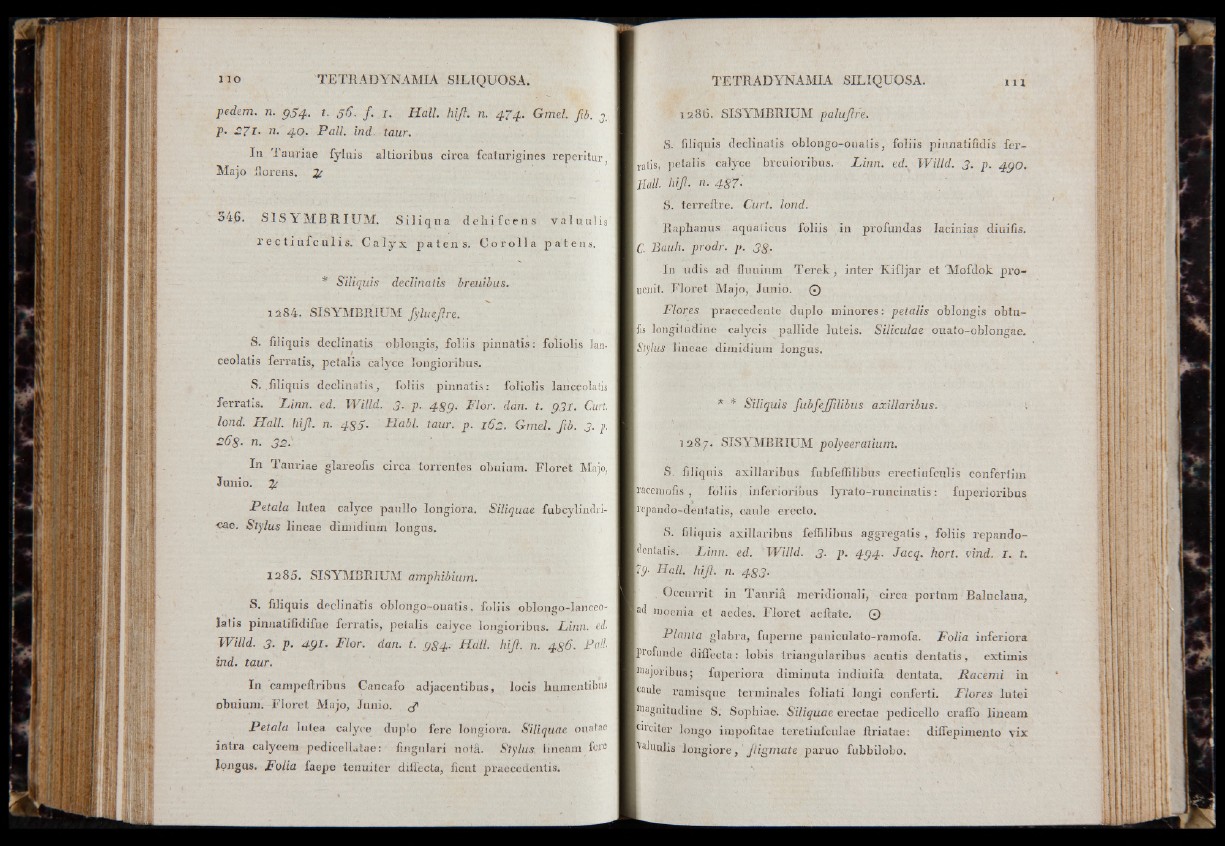 110 TETRADYNAMIA SILIQUOSA.
pedem. n. 954. t. 56. f. 1. Hall. hiſt. n. 474. Gmel. ſib. 3.
p. 271. n. 40. Pall. ind. taur.
In Tauriae ſyluis altioribus circa ſcaturigines reperitur,
Majo florens. ♃
346. SISYMBRIUM. Siliqua dehiſcens valuulis
rectiuſculis. Calyx patens. Corolla patens.
* Siliquis declinatis breuibus.
1284. SISYMBRIUM ſylueſtre.
S. ſiliquis declinatis oblongis, foliis pinnatis: foliolis lan-
ceolatis ſerratis, petalis calyce longioribus.
S. ſiliquis declinatis, foliis pinnatis: foliolis lanceolatis
ſerratis. Linn. ed. Willd. 3. p. 489. Flor. dan. t. 931. Curt.
lond. Hall. hiſt. n. 485. Habl. taur. p. 162. Gmel. ſib. 3. p.
268. n. 32.
In Tauriae glareoſis circa torrentes obuium. Floret Majo,
Junio. ♃
Petala lutea calyce paullo longiora. Siliquae ſubcylindri-
cae. Stylus lineae dimidium longus.
1285. SISYMBRIUM amphibium.
S. ſiliquis declinatis oblongo-ouatis, foliis oblongo-lanceo-
latis pinnatifidiſue ſerratis, petalis calyce longioribus. Linn. ed.
Willd. 3. p. 491. Flor. dan. t. 984. Hall. hiſt. n. 486. Pall.
ind. taur.
In campeſtribus Caucaſo adjacentibus, locis humentibus
obuium. Floret Majo, Junio. ♂
Petala lutea calyce duplo fere longiora. Siliquae ouatae
intra calycem pedicellatae: ſingulari notâ. Stylus lineam fere
longus. Folia ſaepe tenuiter diſſecta, ſicut praecedentis.
TETRADYNAMIA SILIQUOSA. 111
1286. SISYMBRIUM paluſtre.
S. ſiliquis declinatis oblongo-oualis, foliis pinnatifidis ſer-
ratis, petalis calyce breuioribus. Linn. ed. Willd. 3. p. 490.
Hall. hiſt. n. 487.
S. terreſtre. Curt. lond.
Raphanus aquaticus foliis in profundas lacinias diuiſis.
C. Bauh. prodr. p. 38.
In udis ad fluuium Terek, inter Kiſljar et Moſdok pro-
uenit. Floret Majo, Junio. ☉
Flores praecedente duplo minores: petalis oblongis obtu-
ſis longitudine calycis pallide luteis. Siliculae ouato-oblongae.
Stylus lineae dimidium longus.
* * Siliquis ſubſeſſilibus axillaribus.
1287. SISYMBRIUM polyceratium.
S. ſiliquis axillaribus ſubſeſſilibus erectiuſculis confertim
racemoſis, foliis inferioribus lyrato-runcinatis: ſuperioribus
repando-dentatis, caule erecto.
S. ſiliquis axillaribus ſeſſilibus aggregatis, foliis repando-
dentatis. Linn. ed. Willd. 3. p. 494. Jacq. hort. vind. 1. t.
79. Hall. hiſt. n. 483.
Occurrit in Tauriâ meridionali, circa portum Baluclaua,
ad moenia et aedes. Floret aeſtate. ☉
Planta glabra, ſuperne paniculato-ramoſa. Folia inferiora
profunde diſſecta: lobis triangularibus acutis dentatis, extimis
majoribus; ſuperiora diminuta indiuiſa dentata. Racemi in
caule ramisque terminales foliati longi conferti. Flores lutei
magnitudine S. Sophiae. Siliquae erectae pedicello craſſo lineam
circiter longo impoſitae teretiuſculae ſtriatae: diſſepimento vix
valuulis longiore, ſtigmate paruo ſubbilobo.